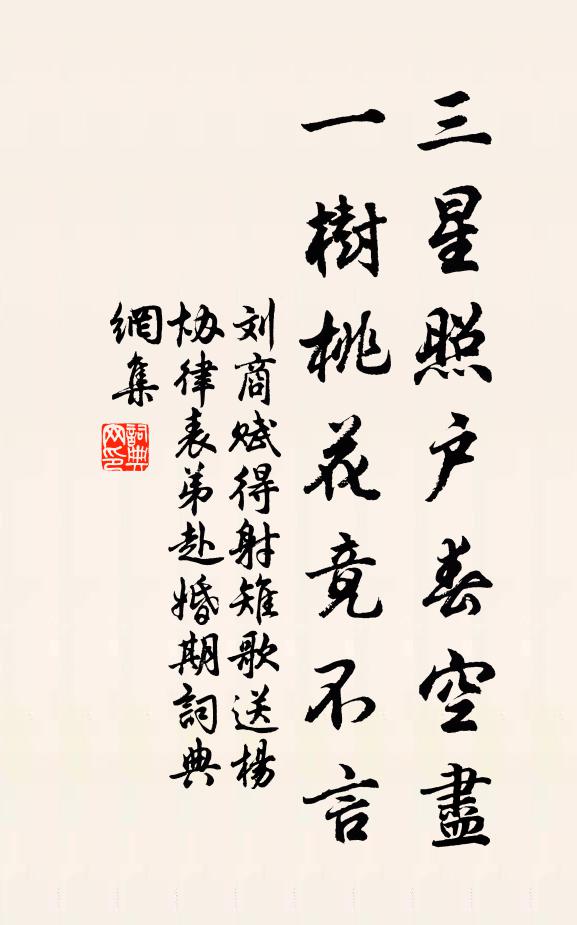 三星照户春空盡
一樹桃花竟不言
刘商赋得射雉歌送楊
协律表弟赴婚期詞典
網集
詞典
网印